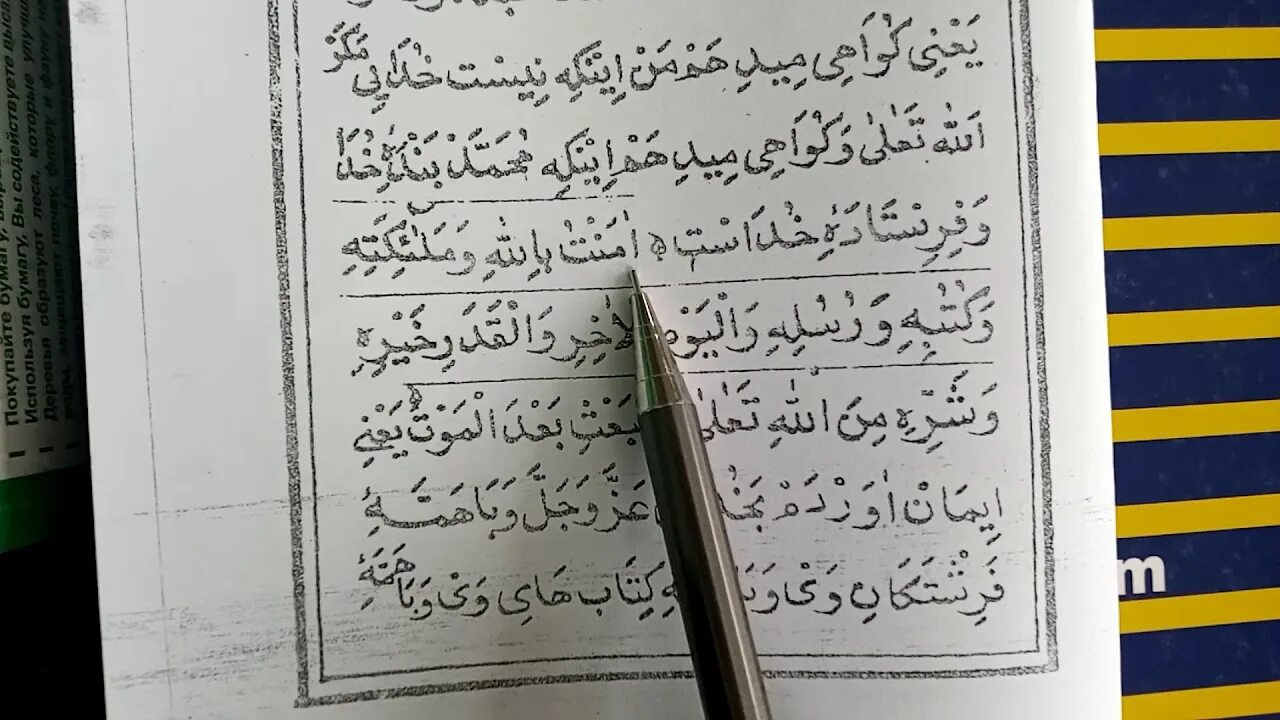 يَعْنِى كُوَاهِى مِيدِ هَمْ مَنْ اِينْكِه نِيسْت خُدَائِى مَكَرْ
اَللّٰه تَعَالٰى وَكُوَاهِى مِيدِ هَمْ اِينْكِه مُحَمَّدْ بَنْدَهٔ خُدَا
وَفِرِسْتَادَهٔ خُدَا اسْت اٰمَنْتُ بِاللّٰهِ وَمَلٰئِكَتِهِ
وَكُتُبِهِ وَرُسُلِهِ وَالْيَوْمِ الْاٰخِرِ وَالْقَدَرِ خَيْرِهِ
وَشَرِّهِ مِنَ اللّٰهِ تَعَالٰى بَعْدَ الْمَوْتِ يَعْنِى
اِيمَانْ اٰوَرْدَمْ عَزَّ وَجَلَّ وَبَا هَمَهٔ
فَرِشْتَكَانِ وَىْ كِتَاب هَاىِ وَىْ وَبَا هَمَهٔ
Покупайте бумагу
Используя бумагу, Вы содействуете
Деревья образуют леса, которые
m